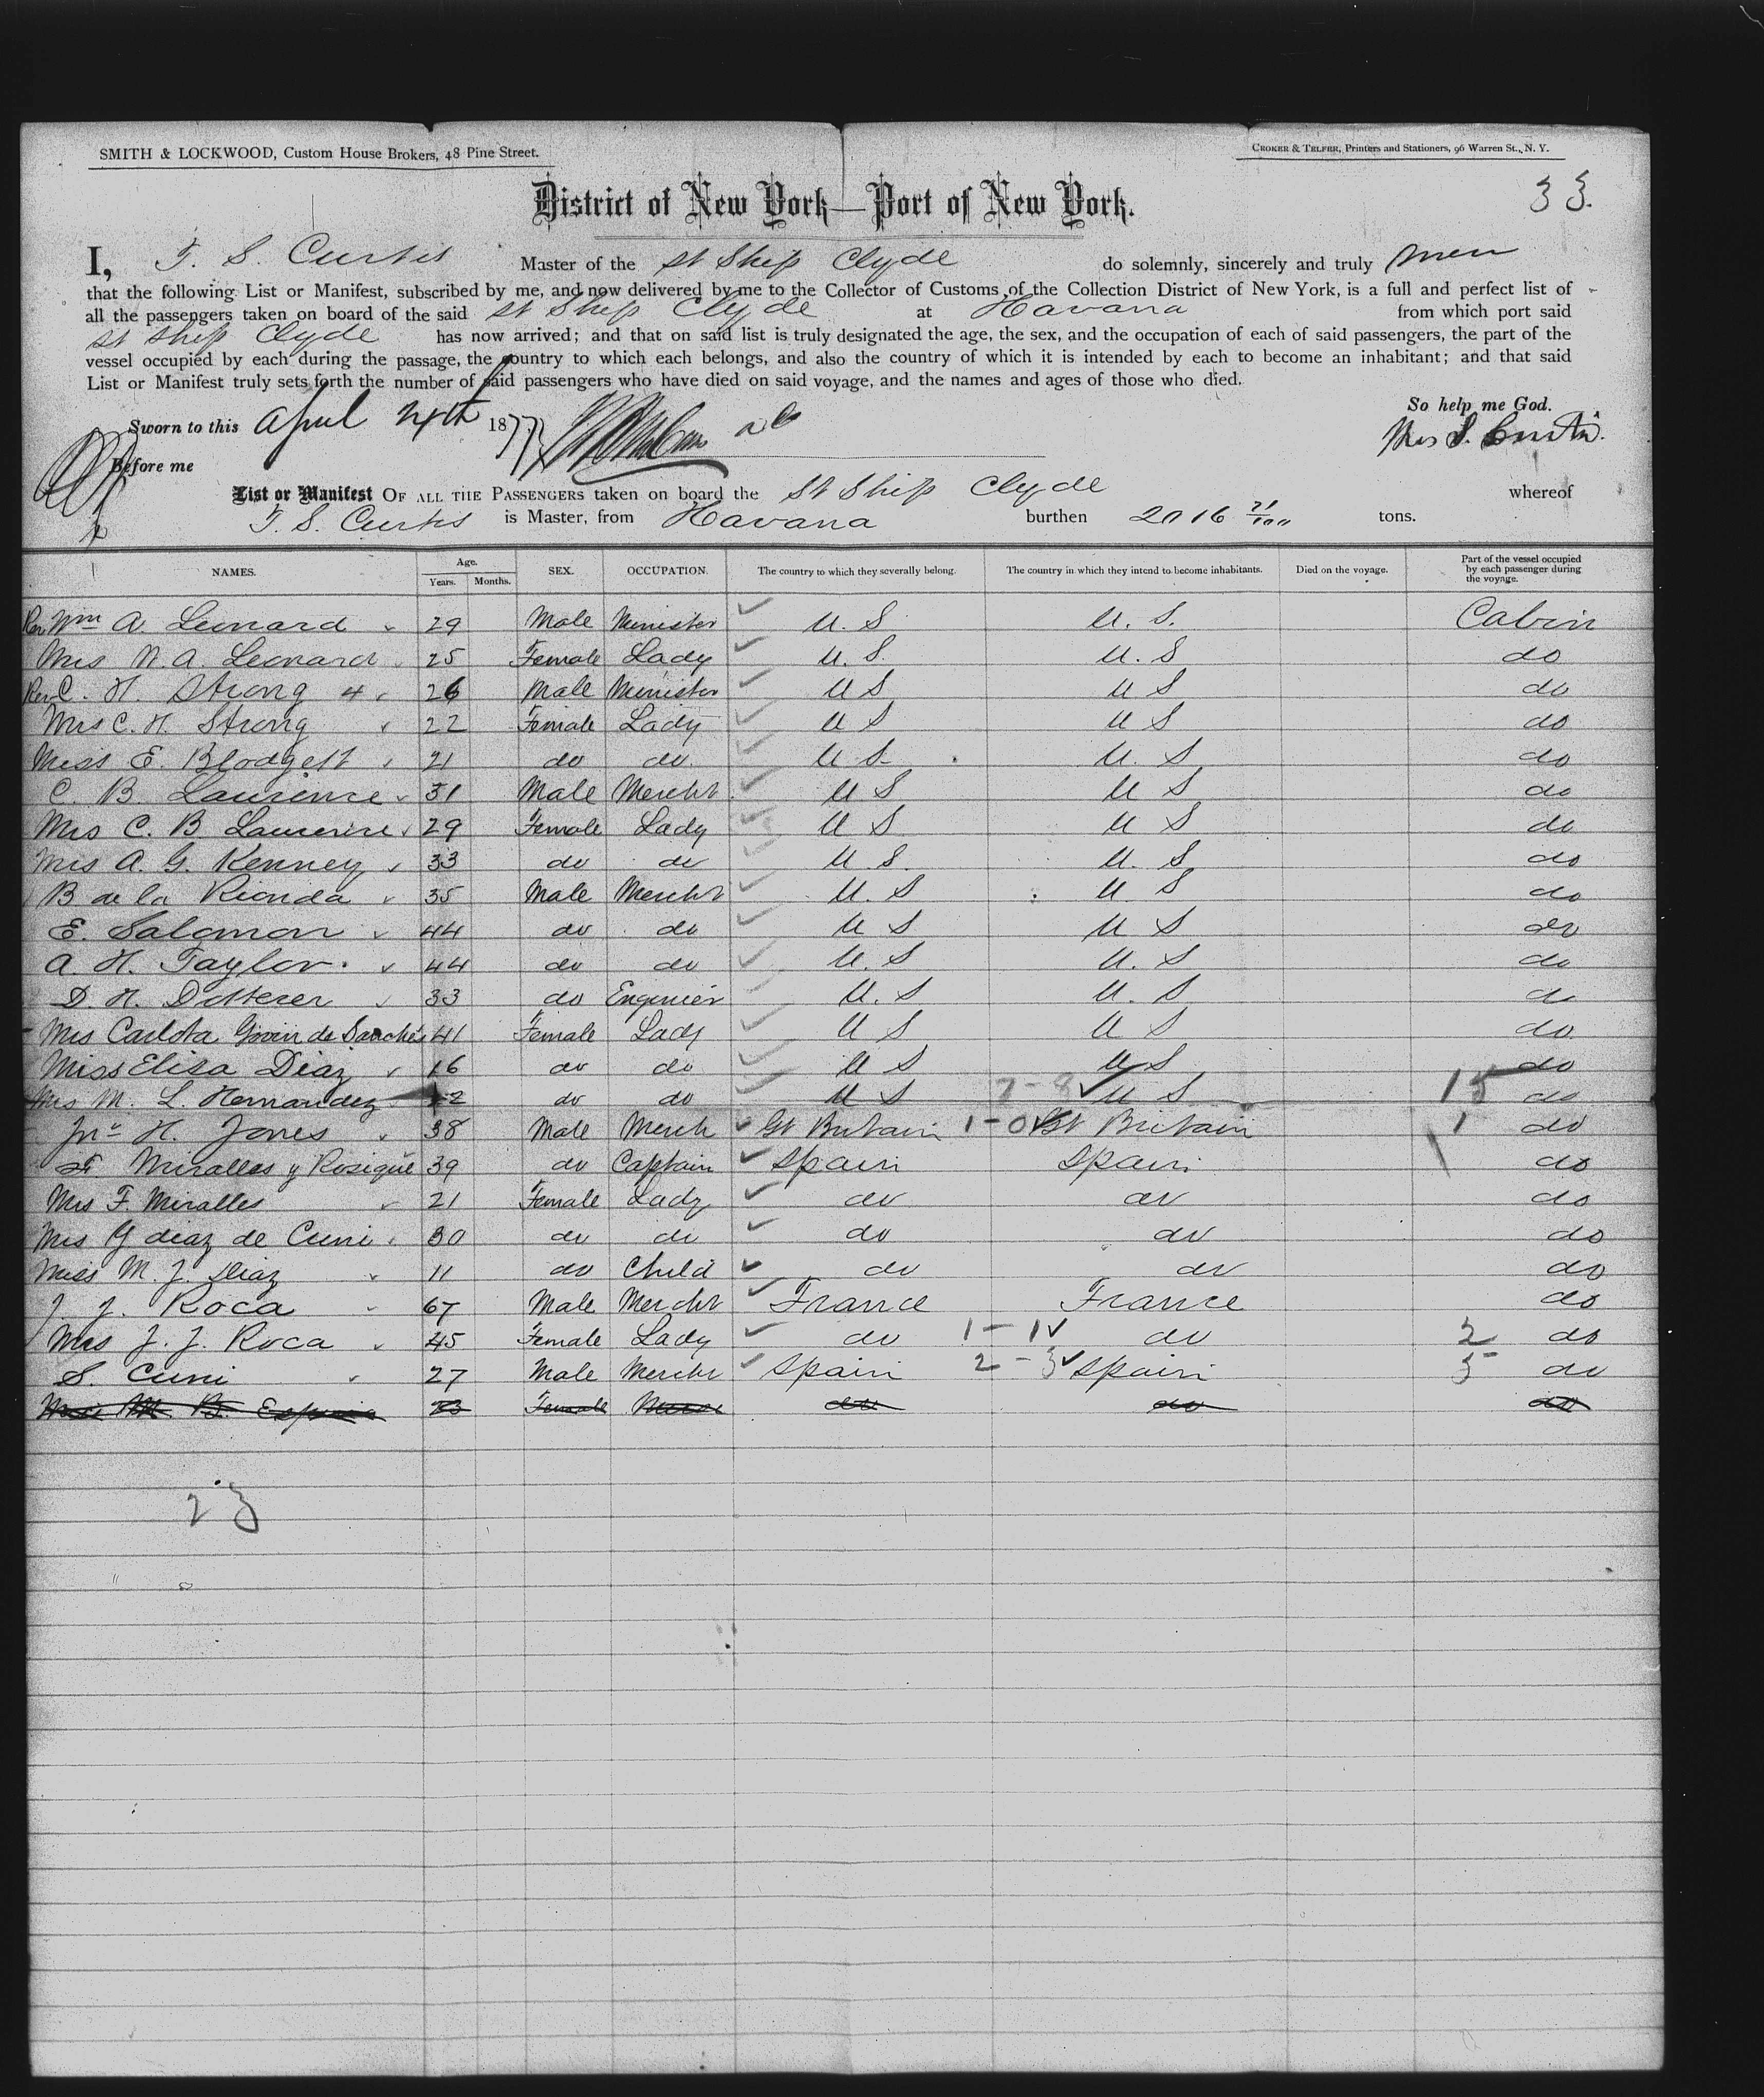 SMITH & LOCKWOOD, Custom House Brokers, 48 Pine Street.
CROKER & TELFER, Printers and Stationers, 96 Warren St., N. Y.
33.
District of New York—Port of New York.
I, T. S. Curtis Master of the St Ship Clyde do solemnly, sincerely and truly
that the following List or Manifest, subscribed by me, and now delivered by me to the Collector of Customs of the Collection District of New York, is a full and perfect list of
all the passengers taken on board of the said St Ship Clyde at Havana from which port said
St Ship Clyde has now arrived; and that on said list is truly designated the age, the sex, and the occupation of each of said passengers, the part of the
vessel occupied by each during the passage, the country to which each belongs, and also the country of which it is intended by each to become an inhabitant; and that said
List or Manifest truly sets forth the number of said passengers who have died on said voyage, and the names and ages of those who died.
So help me God.
Sworn to this April 24th 1877
Thos S. Curtis.
Before me
List or Manifest OF ALL THE PASSENGERS taken on board the St Ship Clyde whereof
T. S. Curtis is Master, from Havana burthen 2016 21/100 tons.
NAMES. Age. Years. Months. SEX. OCCUPATION. The country to which they severally belong. The country in which they intend to become inhabitants. Died on the voyage. Part of the vessel occupied by each passenger during the voyage.
Rev Wm A. Leonard 29 Male Minister U. S U. S. Cabin
Mrs W. A. Leonard 25 Female Lady U. S. U. S do
Rev C. H. Strong 4 26 Male Minister U S U S do
Mrs C. H. Strong 22 Female Lady U S U S do
Miss E. Blodgett 21 do do. U S. U. S do
C. B. Laurence 31 Male Mercht U S U S do
Mrs C. B Laurence 29 Female Lady U S U S do
Mrs A. G. Kenney 33 do do U S. U. S do
B de la Rionda 35 Male Mercht U. S U. S do
E. Salomon 44 do do U S U S do
A. H. Taylor. 44 do do U. S U. S do
D. H. Dotterer 33 do Engineer U. S U. S do
Mrs Carlota Govin de Sanches 41 Female Lady U S U S do
Miss Elisa Diaz 16 do do U S U S do
Mrs M. L. Hernandez 22 do do U S 7-8 U S 15 do
Jno H. Jones 38 Male Merch Gt Britain 1-0 Gt Britain 1 do
F. Miralles y Rosique 39 do Captain Spain Spain do
Mrs F. Miralles 21 Female Lady do do do
Mrs G diaz de Cuni 30 do do do do do
Miss M. J. Diaz 11 do Child do do do
J J. Roca 67 Male Mercht France France do
Mrs J. J. Roca 45 Female Lady do 1-1 do 2 do
S. Cuni 27 Male Mercht Spain 2-3 Spain 5 do
23